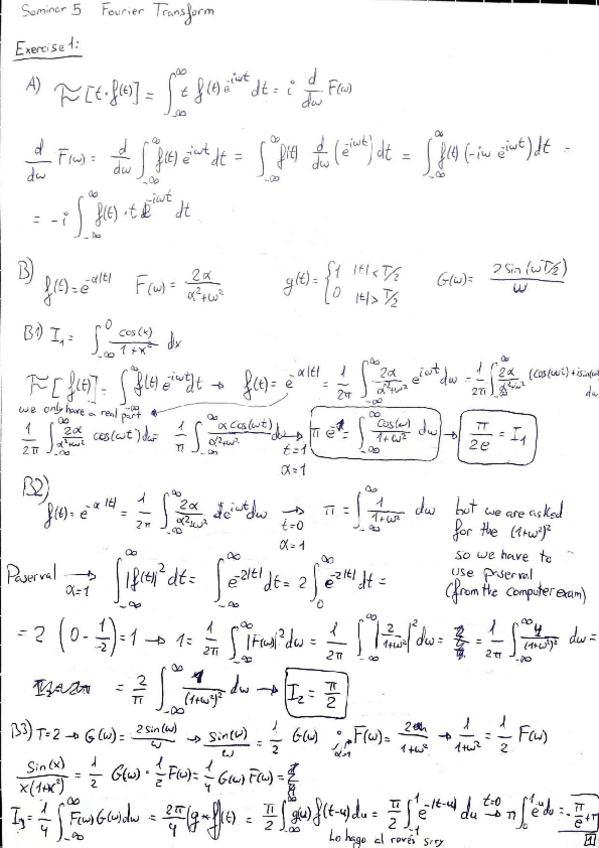 Seminar 5 Fourier Transform
Exercise 1:
A) F[t·f(t)] = ∫_{-∞}^{∞} t f(t) e^{-iωt} dt = i d/dω F(ω)
d/dω F(ω) = d/dω ∫_{-∞}^{∞} f(t) e^{-iωt} dt = ∫_{-∞}^{∞} f(t) d/dω (e^{-iωt}) dt = ∫_{-∞}^{∞} f(t) (-iω e^{-iωt}) dt =
= -i ∫_{-∞}^{∞} f(t)·t e^{-iωt} dt
B) f(t) = e^{-α|t|} F(ω) = 2α/(α²+ω²) g(t) = {1 |t|<T/2, 0 |t|>T/2 G(ω) = 2sin(ωT/2)/ω
B1) I₁ = ∫_{-∞}^{0} cos(x)/(1+x²) dx
F[f(t)] = ∫_{-∞}^{∞} f(t) e^{-iωt} dt → f(t) = e^{-α|t|} = 1/2π ∫_{-∞}^{∞} 2α/(α²+ω²) e^{iωt} dω = 1/2π ∫_{-∞}^{∞} 2α/(α²+ω²) (cos(ωt)+isin(ωt)) dω
we only have a real part
1/2π ∫_{-∞}^{∞} 2α/(α²+ω²) cos(ωt) dω = 1/π ∫_{-∞}^{∞} α cos(ωt)/(α²+ω²) dω → t=1 α=1 π e^{-1} = ∫_{-∞}^{∞} cos(ω)/(1+ω²) dω → π/2e = I₁
B2) f(t) = e^{-α|t|} = 1/2π ∫_{-∞}^{∞} 2α/(α²+ω²) e^{iωt} dω → t=0 α=1 π = ∫_{-∞}^{∞} 1/(1+ω²) dω but we are asked
for the (1+ω²)²
so we have to
use paserval
(from the computer exam)
Paserval → α=1 ∫_{-∞}^{∞} |f(t)|² dt = ∫_{-∞}^{∞} e^{-2|t|} dt = 2 ∫_{0}^{∞} e^{-2|t|} dt =
= 2 (0 - 1/-2) = 1 → 1 = 1/2π ∫_{-∞}^{∞} |F(ω)|² dω = 1/2π ∫_{-∞}^{∞} |2/(1+ω²)|² dω = 1/2π ∫_{-∞}^{∞} 4/(1+ω²)² dω =
= 2/π ∫_{-∞}^{∞} 1/(1+ω²)² dω → I₂ = π/2
B3) T=2 → G(ω) = 2sin(ω)/ω → sin(ω)/ω = 1/2 G(ω) ; α=1 F(ω) = 2/(1+ω²) → 1/(1+ω²) = 1/2 F(ω)
sin(x)/x(1+x²) = 1/2 G(ω) · 1/2 F(ω) = 1/4 G(ω) F(ω) =
I₃ = 1/4 ∫_{-∞}^{∞} F(ω)G(ω)dω = 2π/4 (g*f)(t) = π/2 ∫_{-∞}^{∞} g(u) f(t-u) du = π/2 ∫_{-1}^{1} e^{-|t-u|} du → t=0 π ∫_{0}^{1} e^{-u} du = -π/e + π
Lo hago al revés